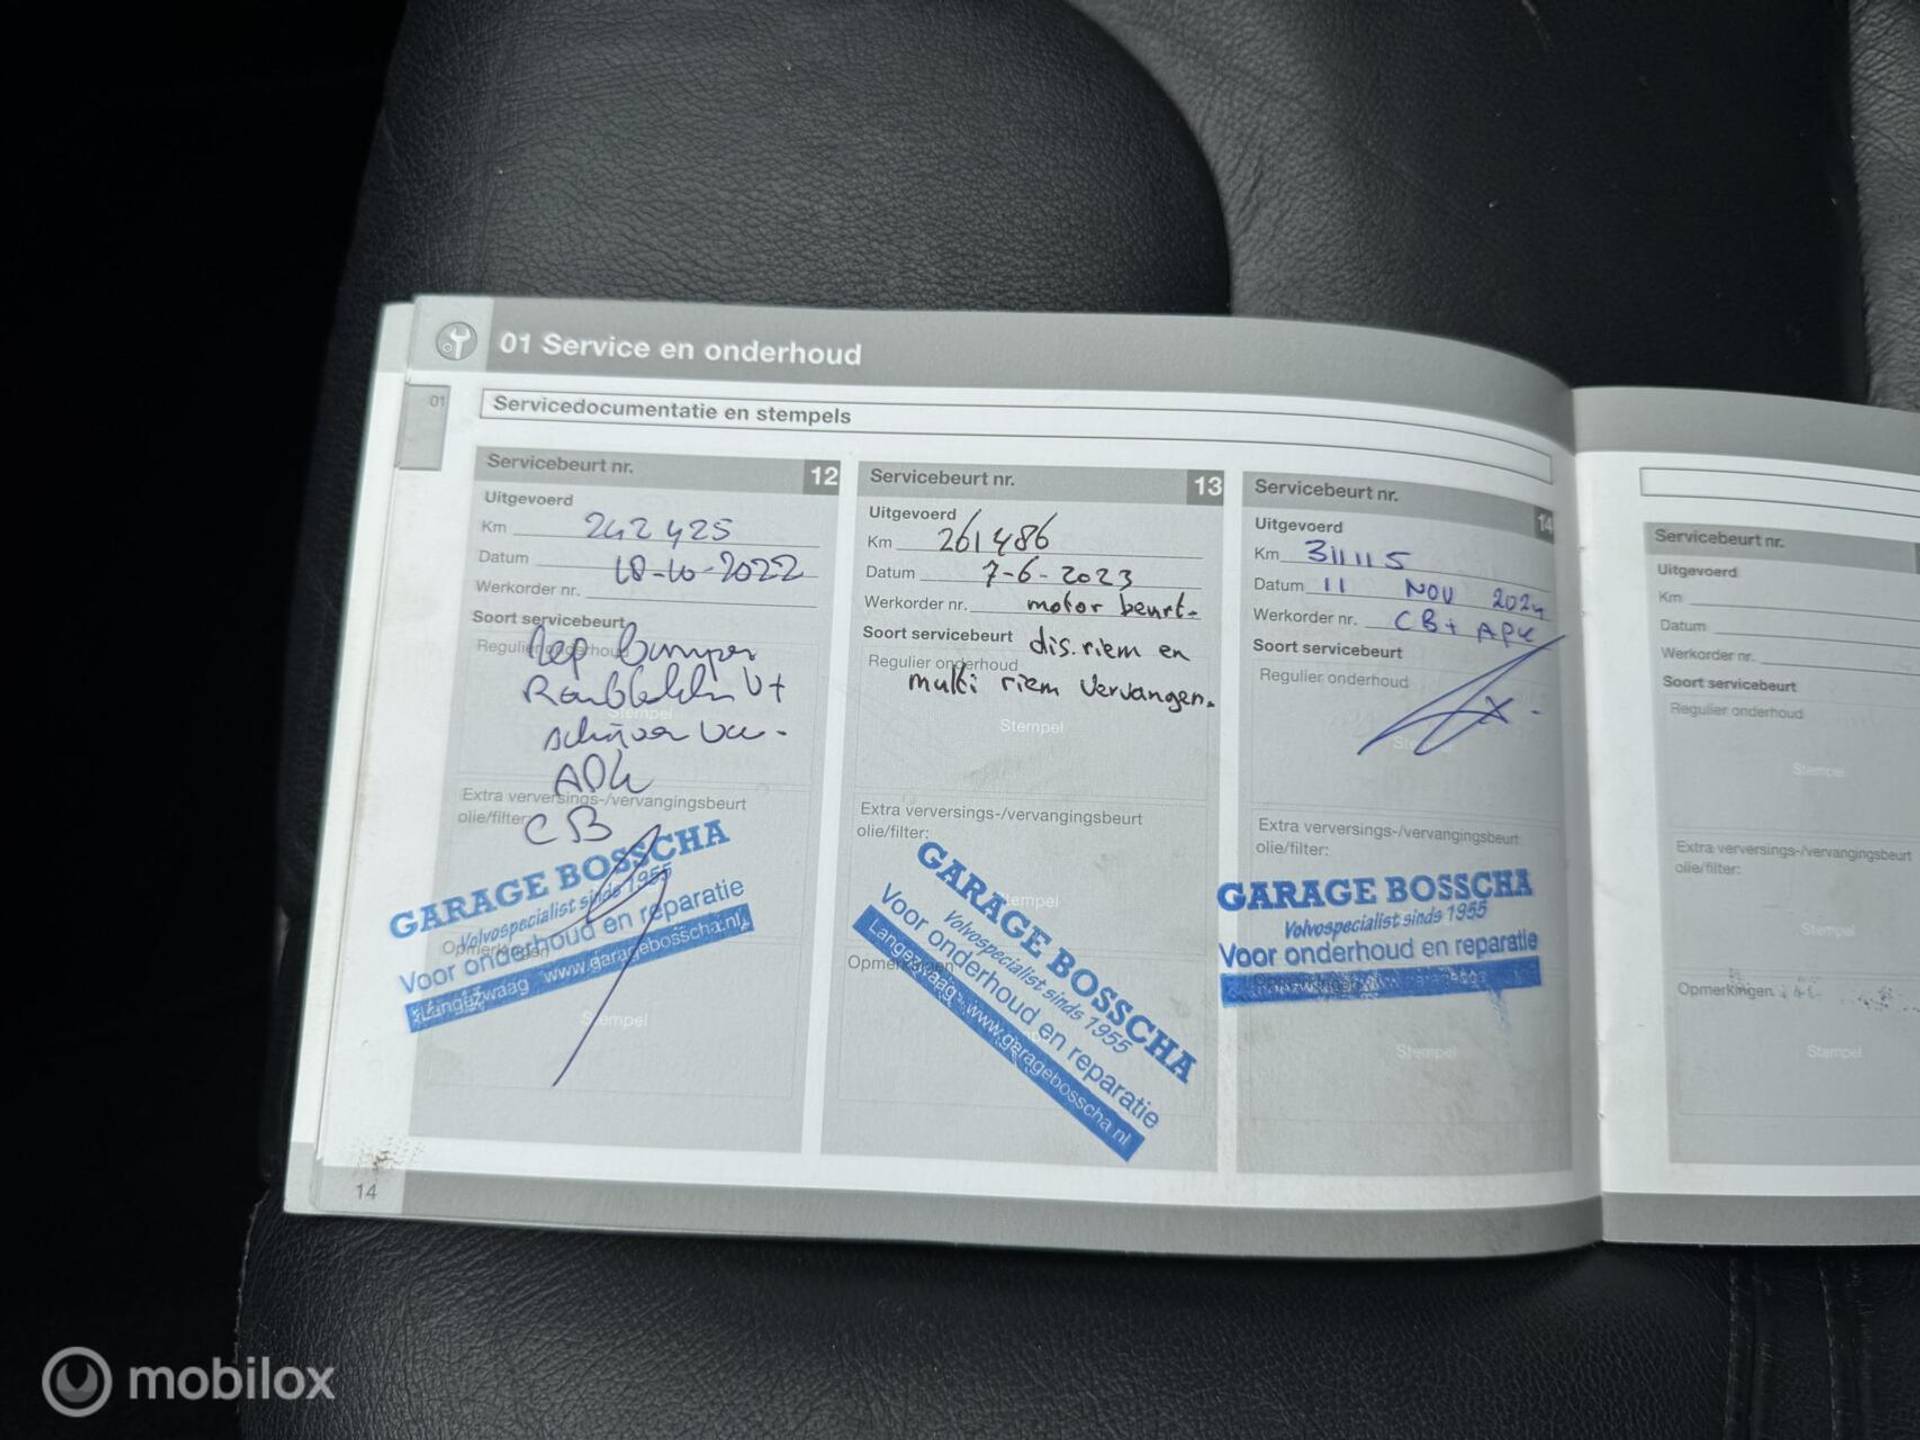 01 Service en onderhoud
01
Servicedocumentatie en stempels
Servicebeurt nr. 12
Uitgevoerd
Km 242425
Datum 18-10-2022
Werkorder nr.
Soort servicebeurt
Regulier onderhoud
Rep bumper
V+
Stempel
schijven
APK
Extra verversings-/vervangingsbeurt
olie/filter:
CB
GARAGE BOSSCHA
Volvospecialist sinds 1955
Voor onderhoud en reparatie
Opmerkingen
Langezwaag www.garagebosscha.nl
Stempel
Servicebeurt nr. 13
Uitgevoerd
Km 261486
Datum 7-6-2023
Werkorder nr. motor beurt-
Soort servicebeurt dis.riem en
Regulier onderhoud
multi riem vervangen.
Stempel
Extra verversings-/vervangingsbeurt
olie/filter:
Stempel
GARAGE BOSSCHA
Volvospecialist sinds 1955
Voor onderhoud en reparatie
Langezwaag www.garagebosscha.nl
Opmerkingen
Servicebeurt nr. 14
Uitgevoerd
Km 311115
Datum 11 NOV 2024
Werkorder nr. CB + APK
Soort servicebeurt
Regulier onderhoud
Extra verversings-/vervangingsbeurt
olie/filter:
GARAGE BOSSCHA
Volvospecialist sinds 1955
Voor onderhoud en reparatie
Stempel
Servicebeurt nr.
Uitgevoerd
Km
Datum
Werkorder nr.
Soort servicebeurt
Regulier onderhoud
Stempel
Extra verversings-/vervangingsbeurt
olie/filter:
Stempel
Opmerkingen
Stempel
14
mobilox